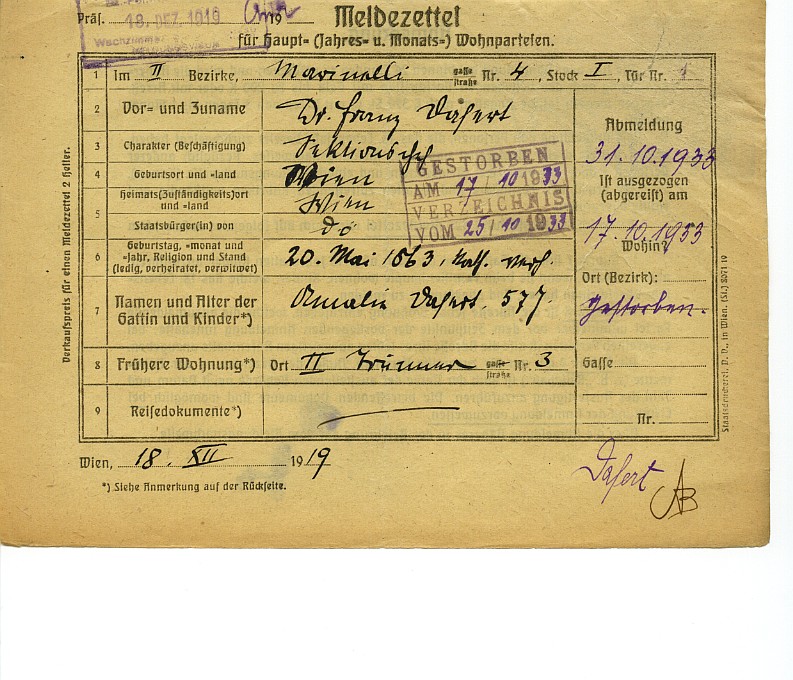 Präs. 18. DEZ. 1919 19
Wachzimmer
Meldezettel
für Haupt= (Jahres= u. Monats=) Wohnparteien.
1 Im II Bezirke, Marinelli gasse straße Nr. 4, Stock I, Tür Nr. 1
2 Vor= und Zuname Dr. Franz Dafert
3 Charakter (Beschäftigung) Sektionschef
4 Geburtsort und =land Wien
5 Heimats(Zuständigkeits)ort und =land Wien
Staatsbürger(in) von do
6 Geburtstag, =monat und =jahr, Religion und Stand (ledig, verheiratet, verwitwet) 20. Mai 1863, kath. verh.
7 Namen und Alter der Gattin und Kinder*) Amalie Dafert 57 J.
8 Frühere Wohnung*) Ort II gasse straße Nr. 3
9 Reisedokumente*)
GESTORBEN
AM 17/10 1933
VERZEICHNIS
VOM 25/10 1933
Abmeldung
31.10.1933
Ist ausgezogen
(abgereist) am
17.10.1933
Wohin?
Ort (Bezirk):
gestorben.
Gasse
Nr.
Wien, 18. XII 1919
*) Siehe Anmerkung auf der Rückseite.
Dafert
Verkaufspreis für einen Meldezettel 2 Heller.
Staatsdruckerei, N. D., in Wien. (St.) 8071 19